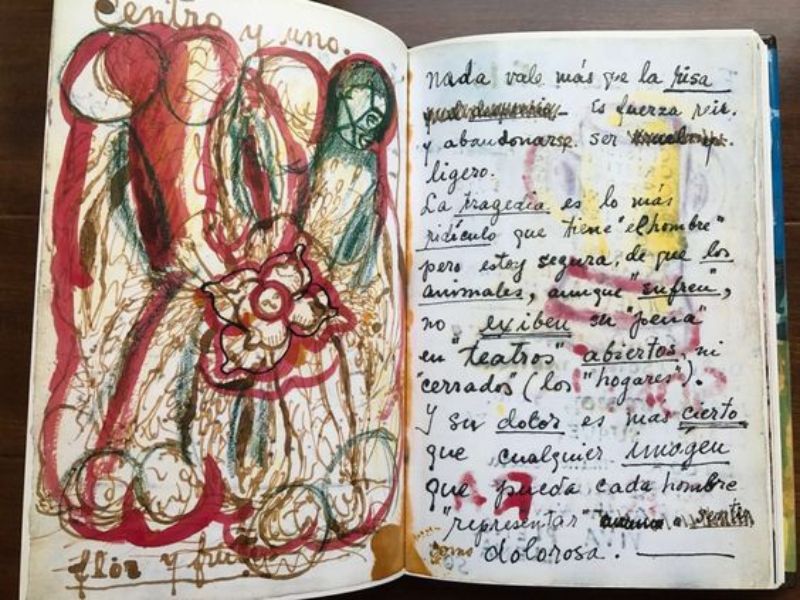 Centro y uno.
flor y fruto
nada vale más que la risa
Es fuerza reir.
y abandonarse. ser
ligero.
La tragedia es lo más
ridículo que tiene "el hombre"
pero estoy segura, de que los
animales, aunque "sufren",
no exiben su "pena"
en "teatros" abiertos, ni
"cerrados" (los "hogares").
Y su dolor es mas cierto
que cualquier imágen
que pueda cada hombre
"representar" o sentir
como dolorosa.